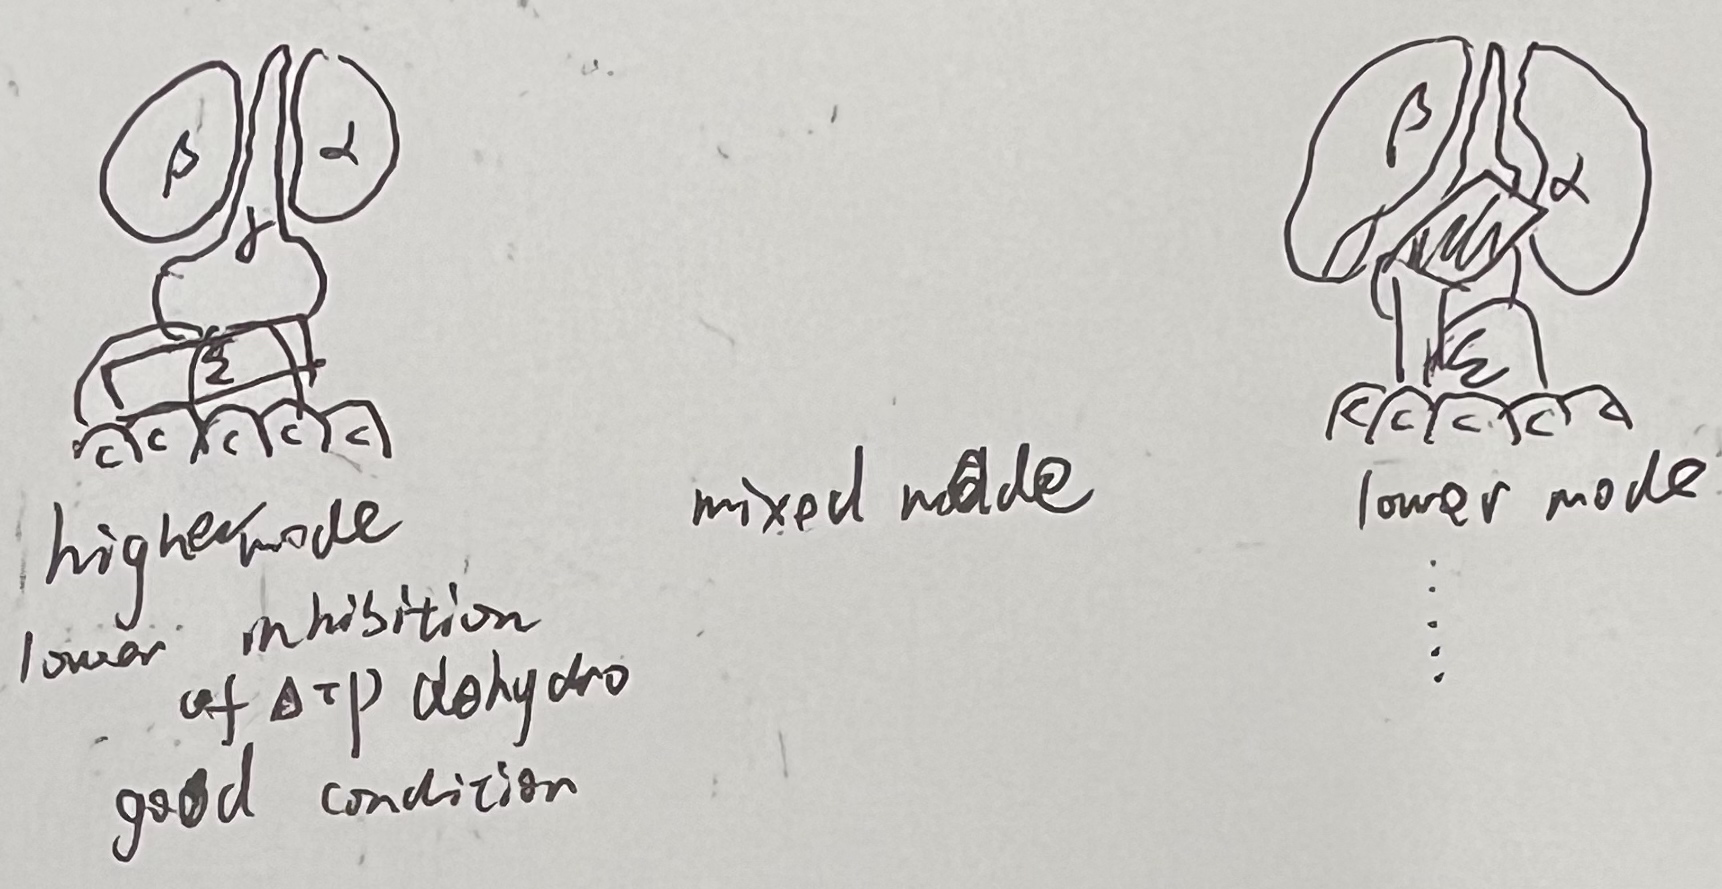 β α
γ
ε
c c c c c
higher mode
lower inhibition
of ATP dohydro
good condition
mixed mode
β α
ε
c c c c c
lower mode